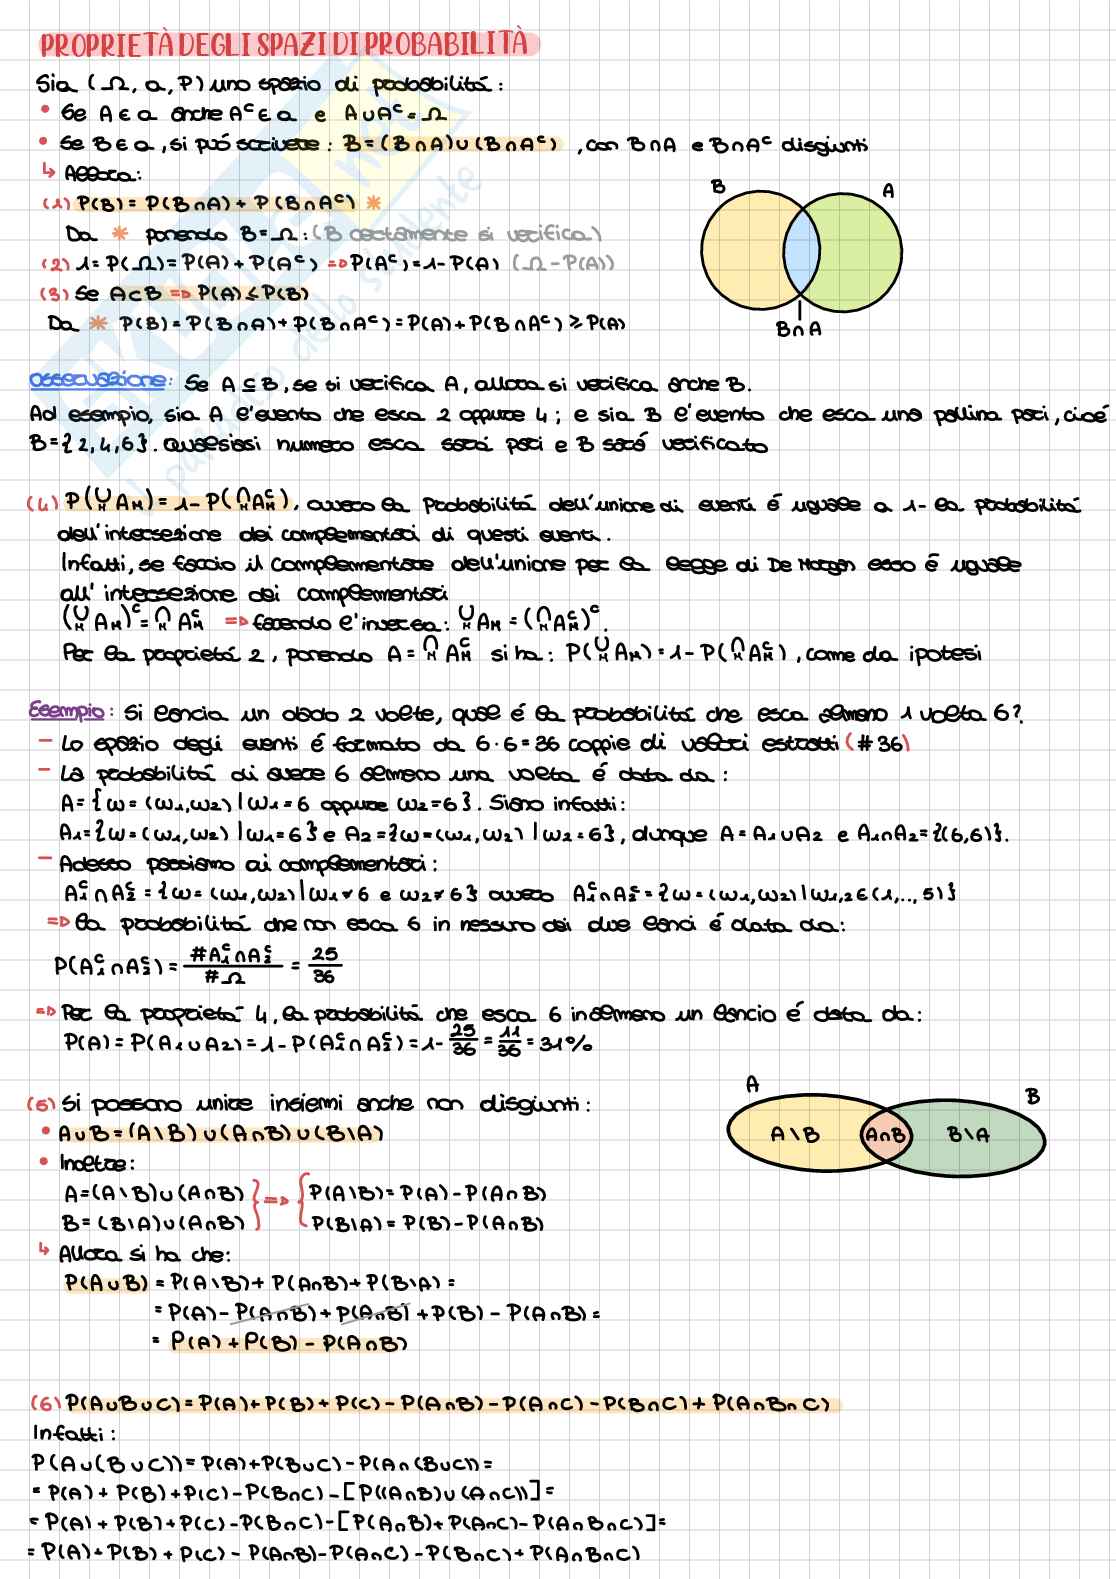 PROPRIETÀ DEGLI SPAZI DI PROBABILITÀ
Sia (Ω, a, P) uno spazio di probabilità:
• Se A∈a anche Aᶜ∈a e A∪Aᶜ=Ω
• Se B∈a, si può scrivere: B=(B∩A)∪(B∩Aᶜ), con B∩A e B∩Aᶜ disgiunti
↳ Allora:
(1) P(B)= P(B∩A)+ P(B∩Aᶜ) *
Da * ponendo B=Ω: (B certamente si verifica)
(2) 1=P(Ω)=P(A)+P(Aᶜ) => P(Aᶜ)=1-P(A) (Ω-P(A))
(3) Se A⊂B => P(A)≤P(B)
Da * P(B)=P(B∩A)+P(B∩Aᶜ)=P(A)+P(B∩Aᶜ)≥P(A)
B
A
B∩A
Osservazione: Se A⊆B, se si verifica A, allora si verifica anche B.
Ad esempio, sia A l'evento che esca 2 oppure 4; e sia B l'evento che esca una pallina pari, cioé
B={2,4,6}. Qualsiasi numero esca sará pari e B sará verificato
(4) P(⋃ₙAₙ)=1-P(⋂ₙAₙᶜ), ovvero la Probabilitá dell'unione di eventi é uguale a 1- la probabilitá
dell'intersezione dei complementari di questi eventi.
Infatti, se faccio il complementare dell'unione per la legge di De Morgan esso é uguale
all'intersezione dei complementari
(⋃ₙAₙ)ᶜ=⋂ₙAₙᶜ => facendo l'inversa: ⋃ₙAₙ=(⋂ₙAₙᶜ)ᶜ.
Per la proprietá 2, ponendo A=⋂ₙAₙᶜ si ha: P(⋃ₙAₙ)=1-P(⋂ₙAₙᶜ), come da ipotesi
Esempio: Si lancia un dado 2 volte, qual é la probabilitá che esca almeno 1 volta 6?
- Lo spazio degli eventi é formato da 6·6=36 coppie di valori estratti (#36)
- La probabilitá di avere 6 almeno una volta é data da:
A={ω=(ω₁,ω₂)|ω₁=6 oppure ω₂=6}. Siano infatti:
A₁={ω=(ω₁,ω₂)|ω₁=6} e A₂={ω=(ω₁,ω₂)|ω₂=6}, dunque A=A₁∪A₂ e A₁∩A₂={(6,6)}.
- Adesso passiamo ai complementari:
A₁ᶜ∩A₂ᶜ={ω=(ω₁,ω₂)|ω₁≠6 e ω₂≠6} ovvero A₁ᶜ∩A₂ᶜ={ω=(ω₁,ω₂)|ω₁,₂∈(1,..,5)}
=> la probabilitá che non esca 6 in nessuno dei due lanci é data da:
P(A₁ᶜ∩A₂ᶜ)= #A₁ᶜ∩A₂ᶜ / #Ω = 25/36
=> Per la proprietá 4, la probabilitá che esca 6 in almeno un lancio é data da:
P(A)=P(A₁∪A₂)=1-P(A₁ᶜ∩A₂ᶜ)=1-25/36=11/36=31%
(5) Si possono unire insiemi anche non disgiunti:
• A∪B=(A\B)∪(A∩B)∪(B\A)
• Inoltre:
A=(A\B)∪(A∩B) } => { P(A\B)=P(A)-P(A∩B)
B=(B\A)∪(A∩B) } { P(B\A)=P(B)-P(A∩B)
↳ Allora si ha che:
P(A∪B)=P(A\B)+P(A∩B)+P(B\A)=
=P(A)-P(A∩B)+P(A∩B)+P(B)-P(A∩B)=
=P(A)+P(B)-P(A∩B)
A
B
A\B
A∩B
B\A
(6) P(A∪B∪C)=P(A)+P(B)+P(C)-P(A∩B)-P(A∩C)-P(B∩C)+P(A∩B∩C)
Infatti:
P(A∪(B∪C))=P(A)+P(B∪C)-P(A∩(B∪C))=
=P(A)+P(B)+P(C)-P(B∩C)-[P((A∩B)∪(A∩C))]=
=P(A)+P(B)+P(C)-P(B∩C)-[P(A∩B)+P(A∩C)-P(A∩B∩C)]=
=P(A)+P(B)+P(C)-P(A∩B)-P(A∩C)-P(B∩C)+P(A∩B∩C)